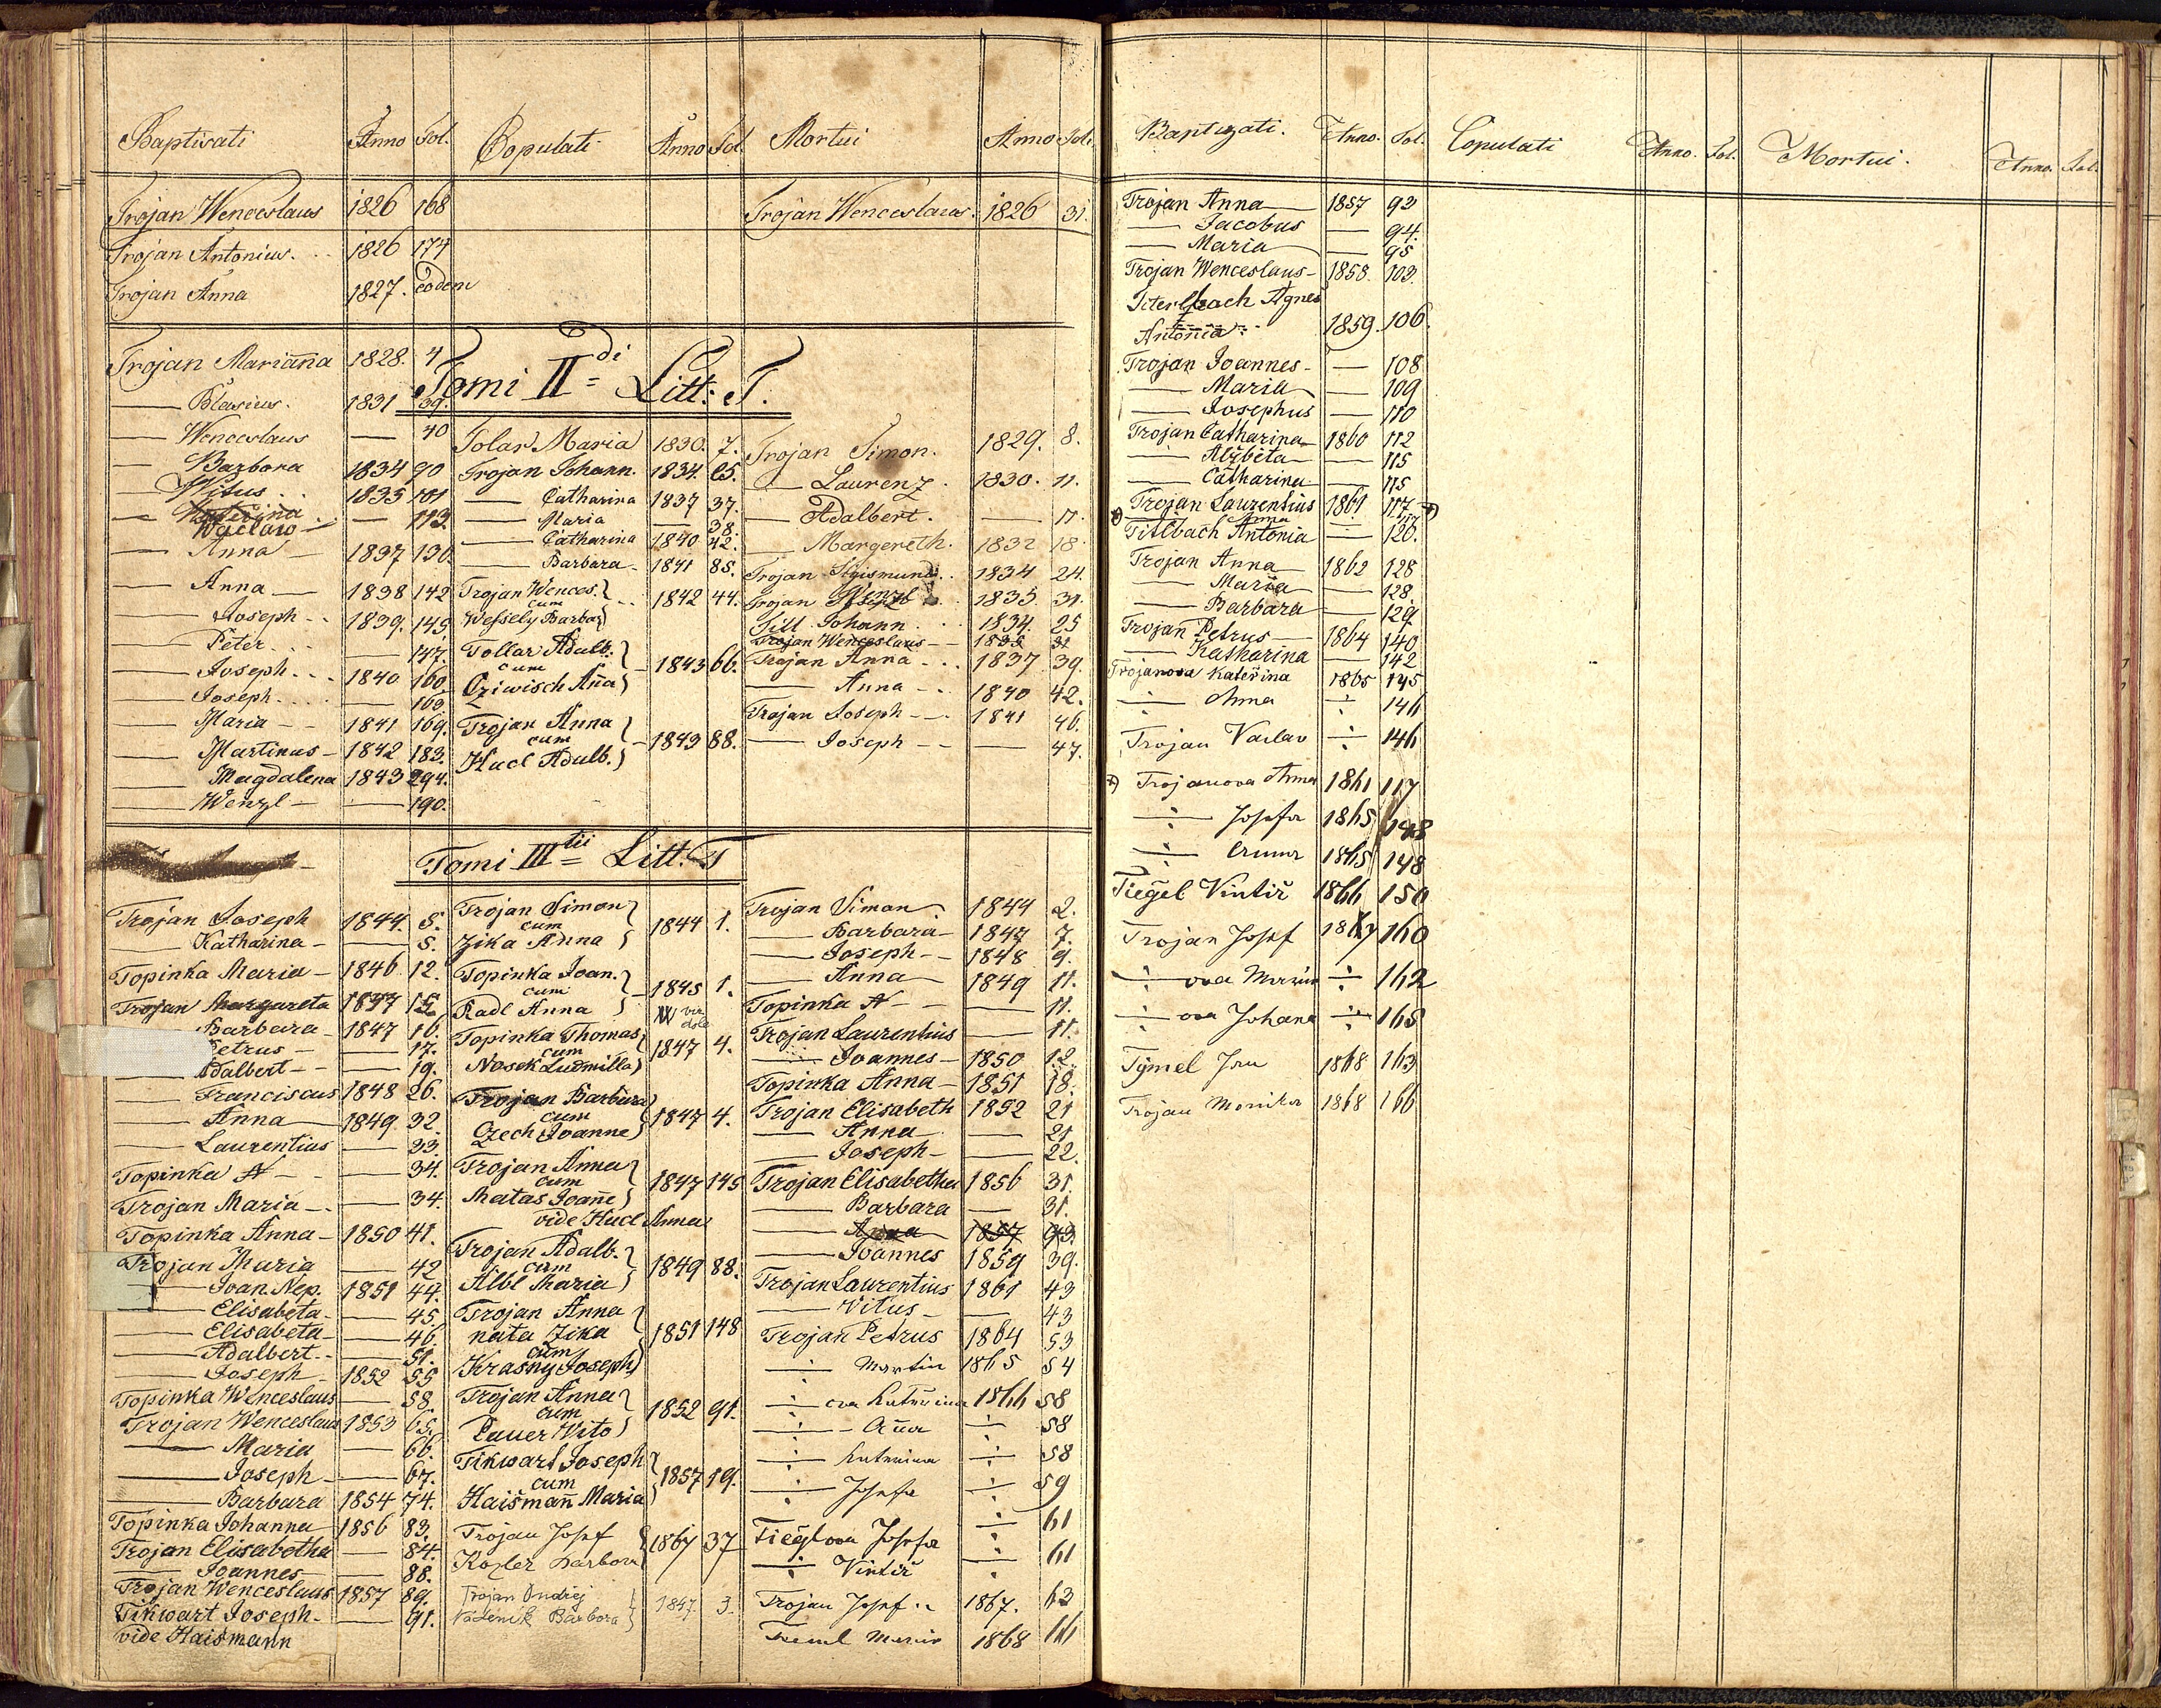 Baptisati Anno Fol. Copulati Anno Fol. Mortui Anno Fol.
Trojan Wenceslaus 1826 168
Trojan Antonius 1826 174
Trojan Anna 1827. eodem
Trojan Wenceslaus. 1826 31
Tomi II di Litt: T.
Trojan Marianna 1828. 4
— Blasius. 1831 39.
— Wenceslaus — 40
— Barbora 1834 90
— Witus 1835 101
— Waclaw — 113.
— Anna — 1837 130.
— Anna — 1838 142
— Joseph - 1839. 145.
— Peter — 147.
— Joseph 1840 160
— Joseph — 163.
— Maria 1841 169.
— Martinus 1842 183.
— Magdalena 1843 294.
— Wenzl — 190.
Tolar Maria 1830. 7.
Trojan Johann. 1834. 25.
— Catharina 1837 37.
— Maria — 38.
— Catharina 1840 42.
— Barbara 1841 85.
Trojan Wences.
cum
Wessely Barbar 1842 44.
Tollar Adalb.
cum
Cziwisch Aña 1843 66.
Trojan Anna
cum
Hucl Adulb. 1843 88.
Trojan Simon. 1829. 8.
— Laurenz. 1830. 11.
— Adalbert. — 11.
— Margereth. 1832 18.
Trojan Sigismund 1834 24.
Trojan Wenzl 1835. 31.
Till Johann 1834. 25
Trojan Wenceslaus 1835 31
Trojan Anna 1837 39.
— Anna 1840 42.
Trojan Joseph 1841 46.
— Joseph — 47.
Tomi III tii Litt. T
Trojan Joseph 1844. 5.
— Katharina — 5.
Topinka Maria 1846. 12.
Trojan Margareta 1847 15
— Barbara 1847 16.
Petrus — 17.
Adalbert — 19.
— Franciscus 1848 26.
— Anna 1849. 32.
— Laurentius — 33.
Topinka N — 34.
Trojan Maria — 34.
Topinka Anna 1850 41.
Trojan Maria — 42
— Joan. Nep. 1851 44.
— Elisabeta — 45.
— Elisabeta — 46.
— Adalbert — 51.
— Joseph 1852 55
Topinka Wenceslaus — 58.
Trojan Wenceslaus 1853 65.
— Maria — 66.
— Joseph — 67.
— Barbara 1854 74.
Topinka Johanna 1856 83.
Trojan Elisabetha — 84.
— Joannes — 88.
Trojan Wenceslaus 1857 89.
Tikwart Joseph — 91.
vide Haismann
Trojan Simon
cum
Zika Anna 1844 1.
Topinka Joan.
cum
Radl Anna 1845 1.
Topinka Thomas
cum
Nosek Ludmilla 1847 4.
Trojan Barbara
cum
Czech Joanne 1847 4.
Trojan Anna
cum
Matas Joañe 1847 145
vide Hucl Anna
Trojan Adalb.
cum
Albl Maria 1849 88.
Trojan Anna
nata Zika
cum
Krasny Joseph 1851 148
Trojan Anna
cum
Pauer Vito 1852 91.
Tikwart Joseph
cum
Haišmañ Maria 1857 19.
Trojan Josef
Kozler Barbora 1867 37
Trojan Ondřej
Barbora 1847 3.
Trojan Simon 1844 2.
— Barbara 1847 7.
— Joseph 1848 9.
— Anna 1849 11.
Topinka N — 11.
Trojan Laurentius — 11.
— Joannes 1850 12.
Topinka Anna 1851 18.
Trojan Elisabeth 1852 21
— Anna — 21
— Joseph — 22.
Trojan Elisabetha 1856 31.
— Barbara — 31.
— Anna 1857 93.
— Joannes 1859 39.
Trojan Laurentius 1861 43
— Vitus — 43
Trojan Petrus 1864 53
÷ Martin 1865 54
÷ ova Kateřina 1866 58
÷ Aña ÷ 58
÷ Kateřina ÷ 58
÷ Josefa ÷ 59
Tieglova Josefa ÷ 61
÷ Vintíř ÷ 61
Trojan Josef 1867. 63
1868 66
Baptizati. Anno. Fol. Copulati Anno. Fol. Mortui. Anno. Fol.
Trojan Anna 1857 92
— Jacobus — 94.
— Maria — 95
Trojan Wenceslaus 1858 103.
Titerlbach Agnes
Antonia 1859. 106.
Trojan Joannes — 108
— Maria — 109
— Josephus — 110
Trojan Catharina 1860 112
— Alžběta — 115
— Catharina — 115
Trojan Laurentius 1861 117
— Anna — 117
Titlbach Antonia — 120.
Trojan Anna 1862 128
— Maria — 128.
— Barbara — 129.
Trojan Petrus 1864 140
— Katharina — 142
Trojanova Kateřina 1865 145
÷ Anna ÷ 146
Trojan Vaclav ÷ 146
Trojanova Anna 1861 117
÷ Josefa 1865 148
÷ Anna 1865 148
Tiegel Vintíř 1866 150
Trojan Josef 1867 160
÷ ova Marie ÷ 162
÷ ova Johana ÷ 165
Tymel Jan 1868 163
Trojan Monika 1868 166